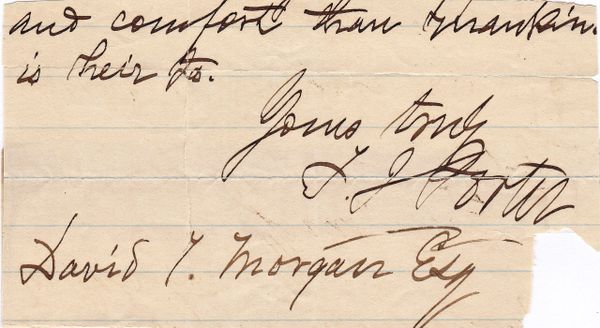 and comfort than mankin
is heir to.
Yours truly
T. J Porter
David T. Morgan Esq